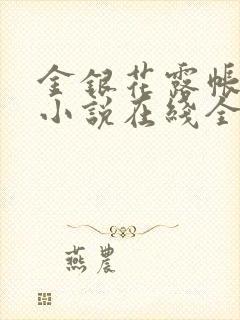 金銀花露帳
小說在綫全
燕農